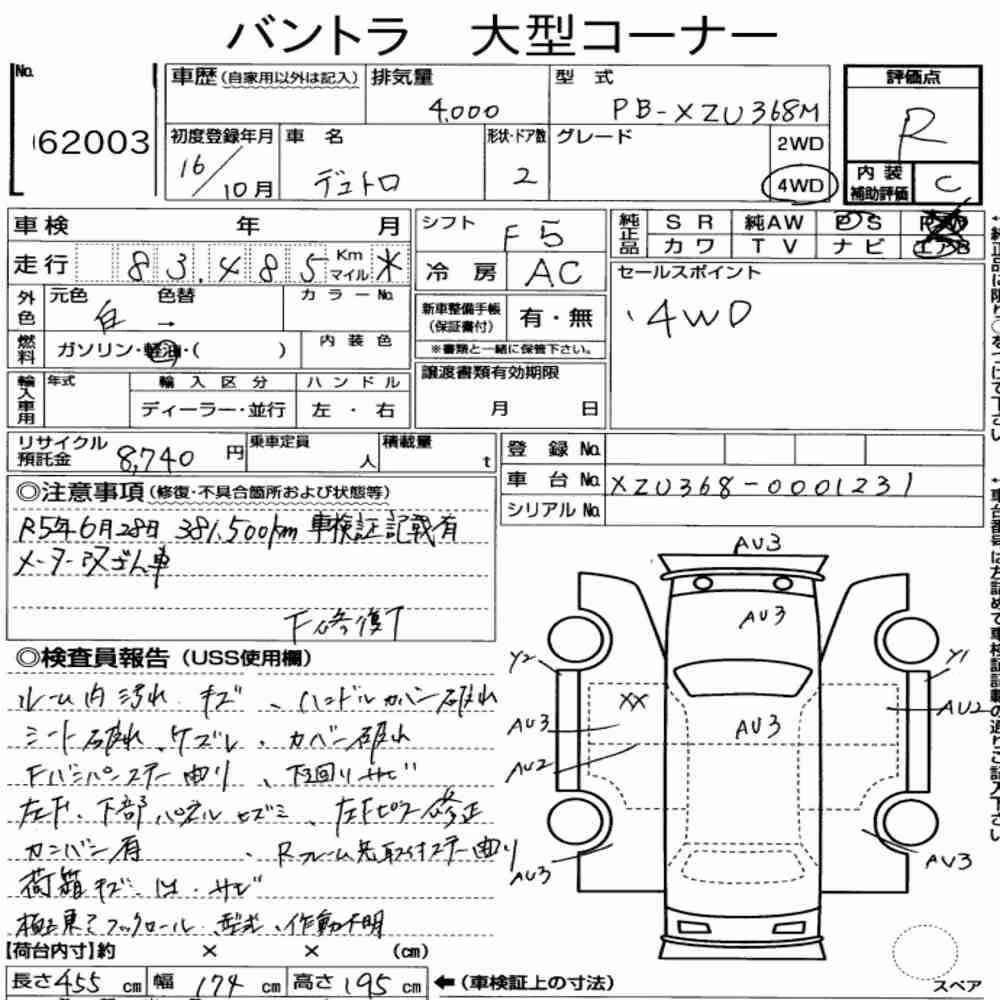 バントラ 大型コーナー
No.
62003
車歴(自家用以外は記入)
排気量
4,000
型式
PB-XZU368M
初度登録年月
16/10月
車名
デュトロ
形状・ドア数
2
グレード
2WD
4WD
評価点
R
内装
補助評価
C
車検 年 月
走行 83,485 Km マイル *
外色 元色 白 色替 → カラーNo.
燃料 ガソリン・軽油・( ) 内装色
輸入車用 年式 輸入区分 ハンドル
ディーラー・並行 左・右
シフト F5
冷房 AC
新車整備手帳
(保証書付)
有・無
※書類と一緒に保管下さい。
譲渡書類有効期限
月 日
純正品 SR 純AW PS
カワ TV ナビ
セールスポイント
・4WD
リサイクル
預託金 8,740 円
乗車定員 人
積載量 t
登録No.
車台No. XZU368-0001231
シリアルNo.
◎注意事項(修復・不具合箇所および状態等)
R5年6月28日 381,500km 車検証記載有
メーター改ざん車
下修復
◎検査員報告(USS使用欄)
ルーム内汚れ キズ、ハンドルカバー破れ
シート破れ、ケズレ、カバー破れ
Fバンパーステー曲り、下回りサビ
左F、下部パネルヒズミ、左Fピラー修正
カンバン有、Rフレーム先取付ステー曲り
荷箱キズ サビ
極東 フックロール 型式、作動不明
【荷台内寸】約 × × (cm)
長さ 455 cm 幅 174 cm 高さ 195 cm ←(車検証上の寸法)
AU3
AU3
Y2
Y1
XX
AU3
AU3
AU2
AU2
AU3
AU3
スペア